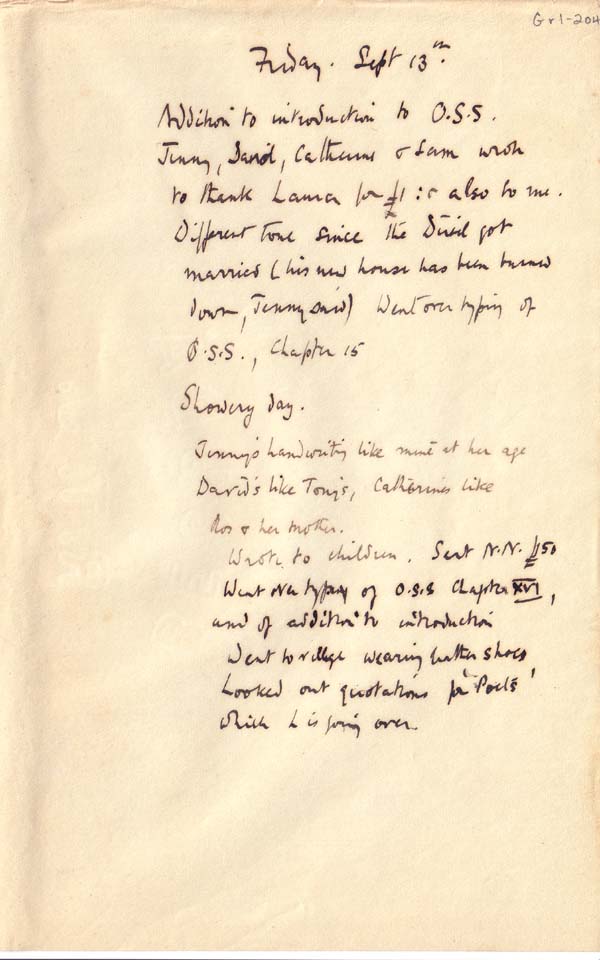 Gr1-204
Friday. Sept 13th.
Addition to introduction to O.S.S.
Jenny, David, Catherine & Sam wrote
to thank Laura for £1 : & also to me.
Different tone since the Devil got
married (his new house has been burned
down, Jenny said) Went over typing of
O.S.S., Chapter 15
Showery day.
Jenny's handwriting like mine at her age
David's like Tony's, Catherine's like
Ros & her mother.
Wrote to children. Sent N.N. £150
Went over typing of O.S.S Chapter XVI,
and of addition to introduction
Went to village wearing leather shoes,
Looked out quotations for 'Poets'
which L is going over.